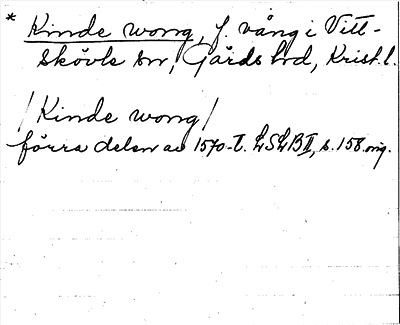 * Kinde wong, f. vång i Vitt-
skövle sn, Gärds hd, Krist. l.
/Kinde wong/
förra delen av 1570-t. LSLB II, s. 158 orig.